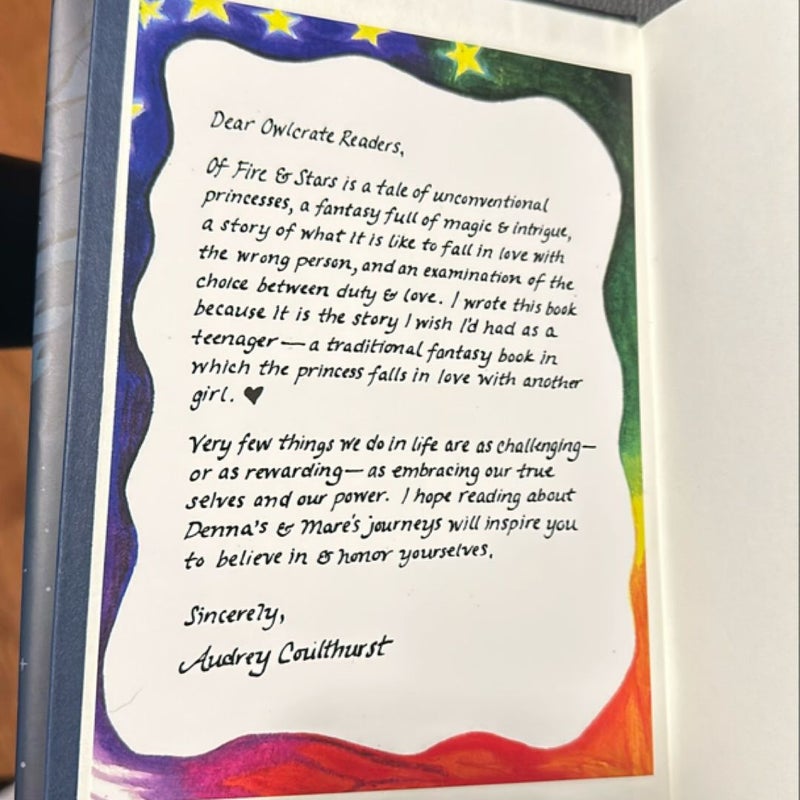 Dear Owlcrate Readers,
Of Fire & Stars is a tale of unconventional
princesses, a fantasy full of magic & intrigue,
a story of what it is like to fall in love with
the wrong person, and an examination of the
choice between duty & love. I wrote this book
because it is the story I wish I'd had as a
teenager—a traditional fantasy book in
which the princess falls in love with another
girl. ♥
Very few things we do in life are as challenging—
or as rewarding—as embracing our true
selves and our power. I hope reading about
Denna's & Mare's journeys will inspire you
to believe in & honor yourselves.
Sincerely,
Audrey Coulthurst